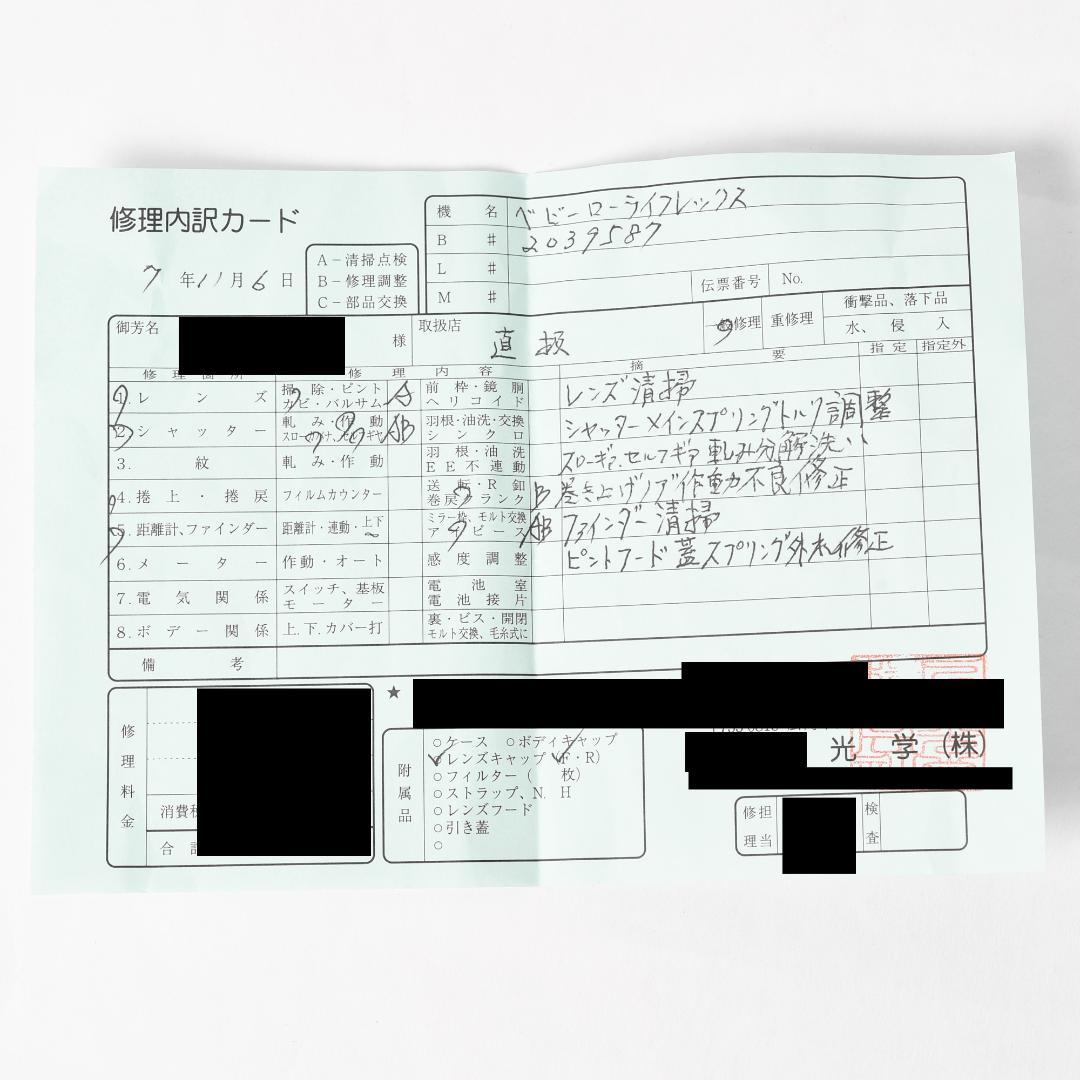 修理内訳カード
7年11月6日
A－清掃点検
B－修理調整
C－部品交換
機名 ベビーローライフレックス
B # 2039587
L #
M #
伝票番号 No.
御芳名 様
取扱店 直扱
一般修理 重修理
衝撃品、落下品
水、侵入
修理箇所 修理内容 摘要 指定 指定外
1.レンズ 掃除・ピント カビ・バルサム A 前枠・鏡胴 ヘリコイド レンズ清掃
2.シャッター 軋み・作動 スローガバナ、セルフギヤ AB 羽根・油洗・交換 シンクロ シャッターメインスプリングトルク調整
3.紋 軋み・作動 羽根・油洗 EE不連動 スローギア、セルフギア軋み分解洗い
4.捲上・捲戻 フィルムカウンター 送転・R釦 巻戻クランク B 巻き上げノブ作動力不良修正
5.距離計、ファインダー 距離計・連動・上下 ミラー枠、モルト交換 アイピース AB ファインダー清掃
6.メーター 作動・オート 感度調整 ピントフード蓋スプリング外れ修正
7.電気関係 スイッチ、基板 モーター 電池室 電池接片
8.ボデー関係 上.下.カバー打 裏・ビス・開閉 モルト交換、毛糸式に
備考
修理料金
消費税
合計
★
附属品
○ケース ○ボディキャップ
○レンズキャップ（F・R）
○フィルター（ 枚）
○ストラップ、N. H
○レンズフード
○引き蓋
○
光学（株）
修理担当
検査